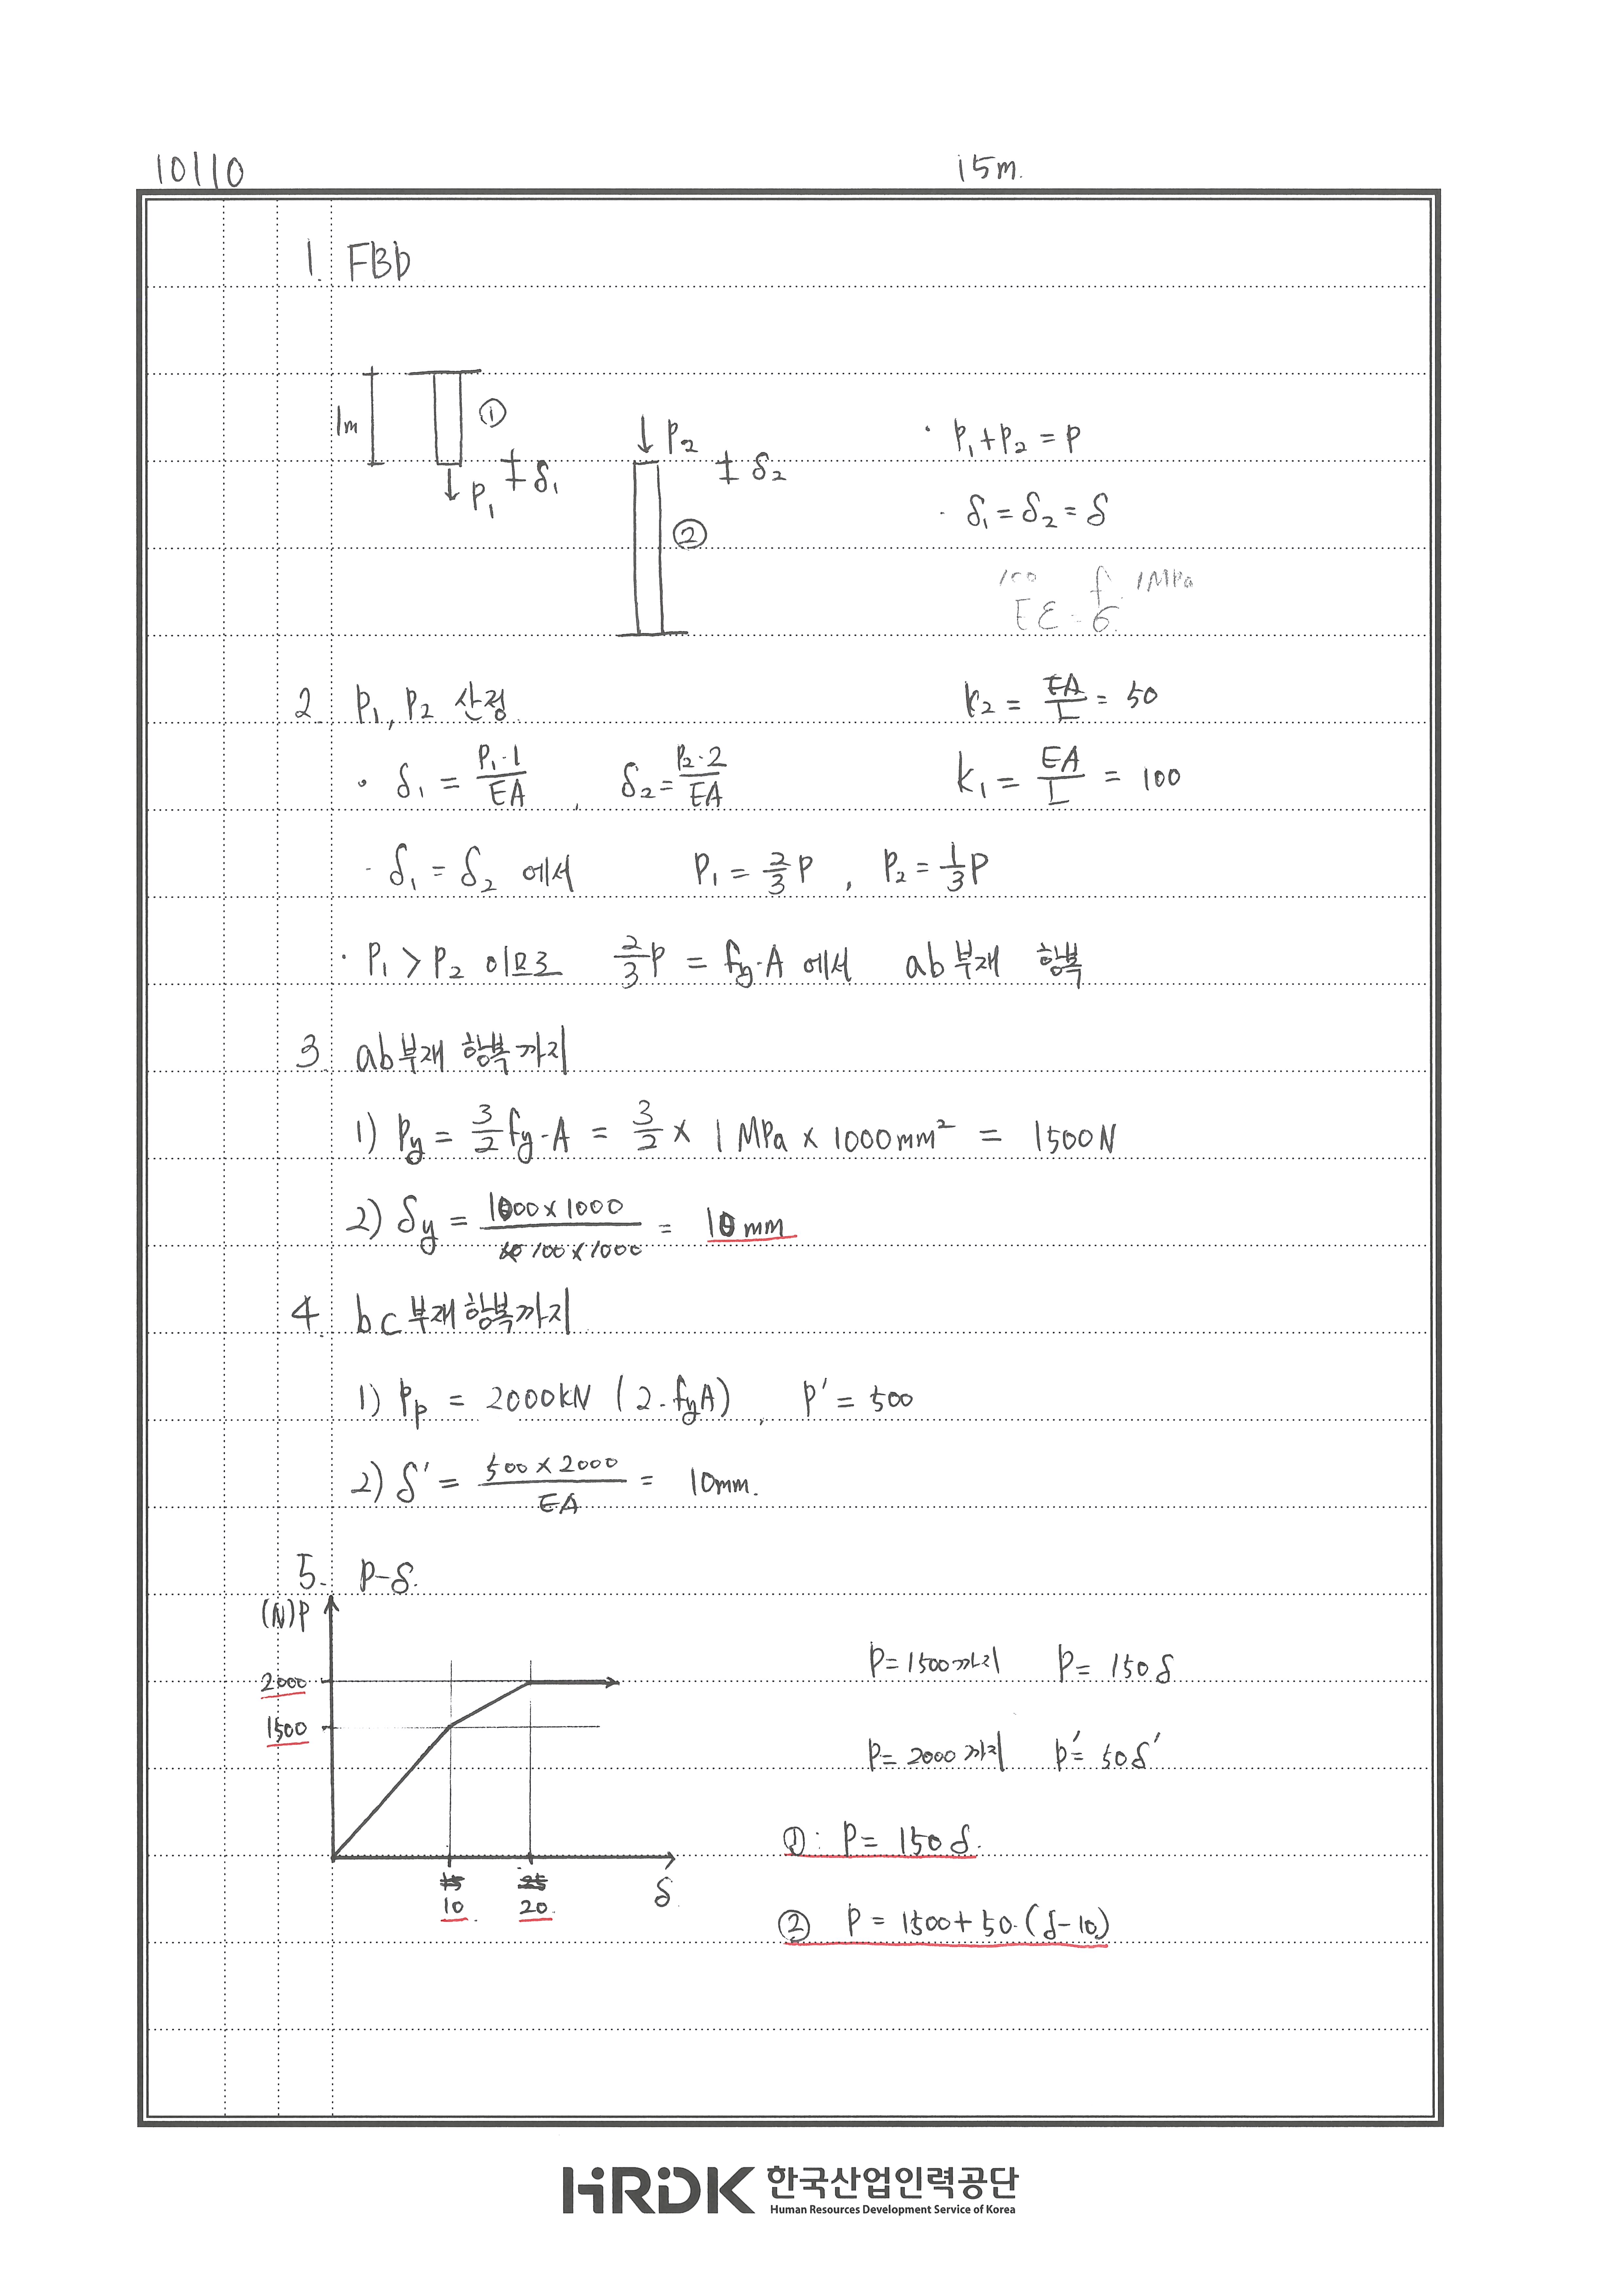 10110
15m.
1. FBD
1m
①
P₁
δ₁
P₂
δ₂
②
· P₁+P₂ = P
· δ₁ = δ₂ = δ
100 f 1MPa
Eε = σ
2. P₁, P₂ 산정
k₂ = EA/L = 50
· δ₁ = P₁·1/EA , δ₂ = P₂·2/EA
k₁ = EA/L = 100
· δ₁ = δ₂ 에서 P₁ = 2/3 P , P₂ = 1/3 P
· P₁ > P₂ 이므로 2/3 P = fy·A 에서 ab부재 항복
3. ab부재 항복까지
1) Py = 3/2 fy·A = 3/2 × 1 MPa × 1000mm² = 1500N
2) δy = 1000×1000/100×1000 = 10mm
4. bc부재항복까지
1) Pp = 2000kN (2·fyA) , P' = 500
2) δ' = 500×2000/EA = 10mm.
5. P-δ.
(N)P
2000
1500
15
10
25
20
δ
P=1500까지 P= 150δ
P=2000까지 P'= 50δ'
①: P= 150δ.
② P = 1500+50·(δ-10)
HRDK 한국산업인력공단
Human Resources Development Service of Korea